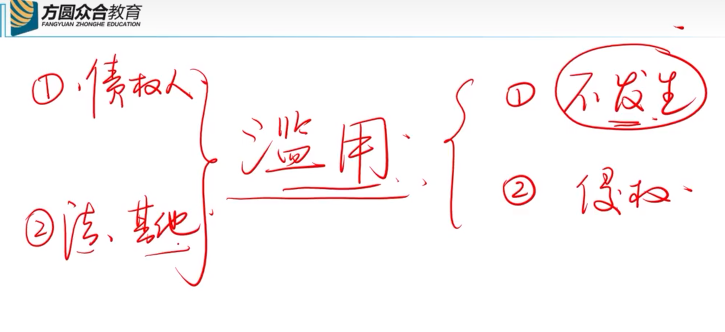 方圆众合教育
FANGYUAN ZHONGHE EDUCATION
①债权人
②法、其他
滥用:
①不发生
②侵权